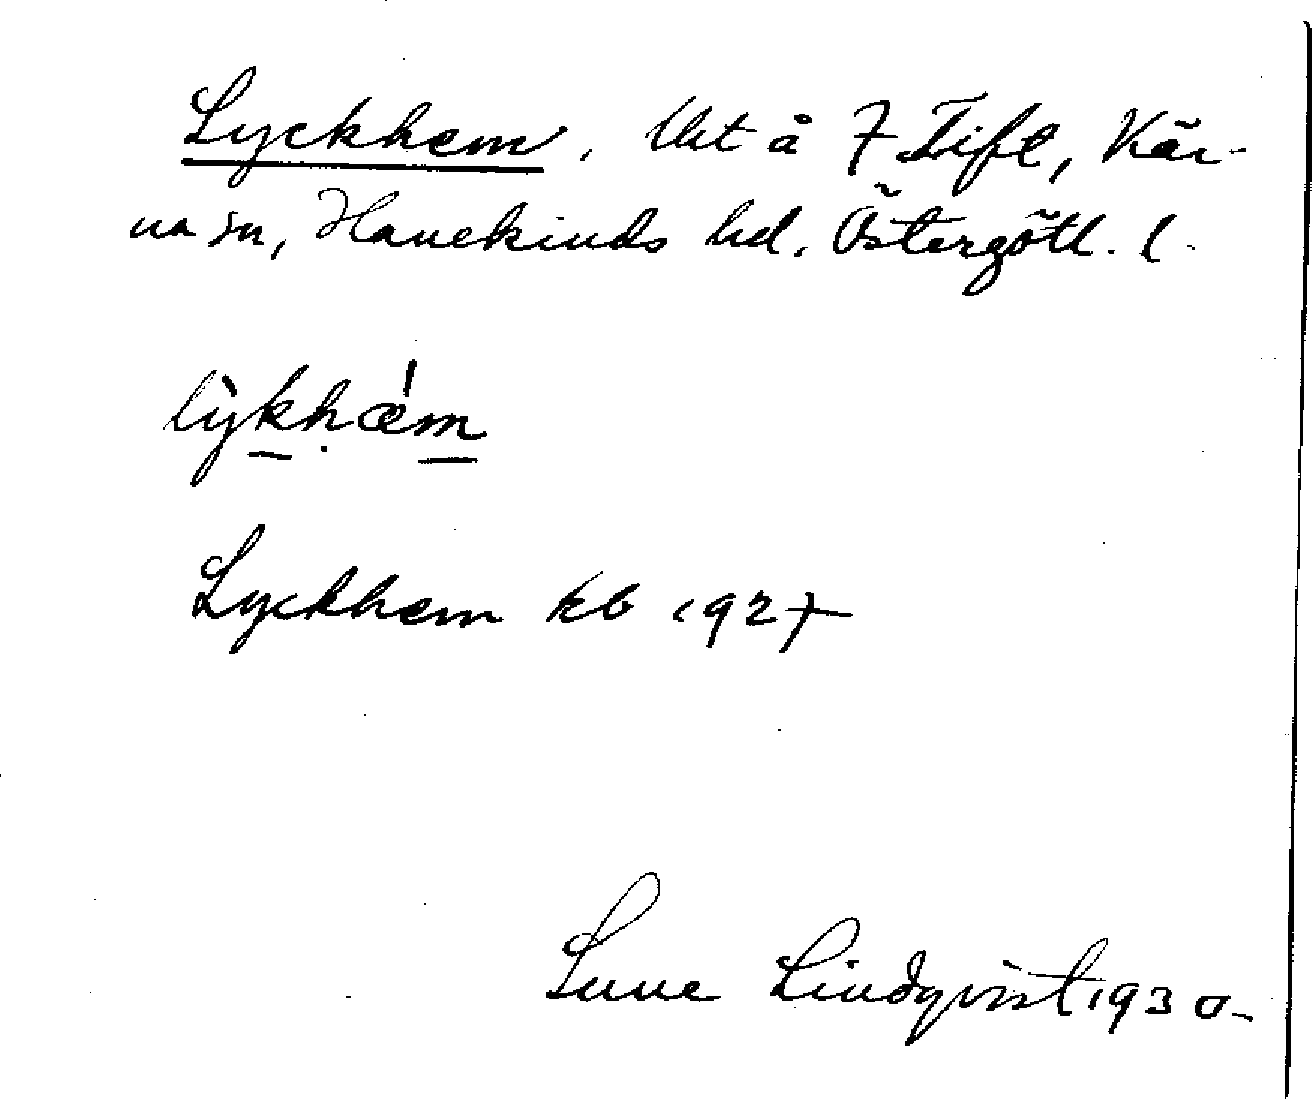 Lyckhem. Lht å 7 Tift, Kär-
na sn, Hanekinds hd. Östergötl. l.
lỳkhæ̀m
Lyckhem kb 1927
Sune Lindqvist 1930